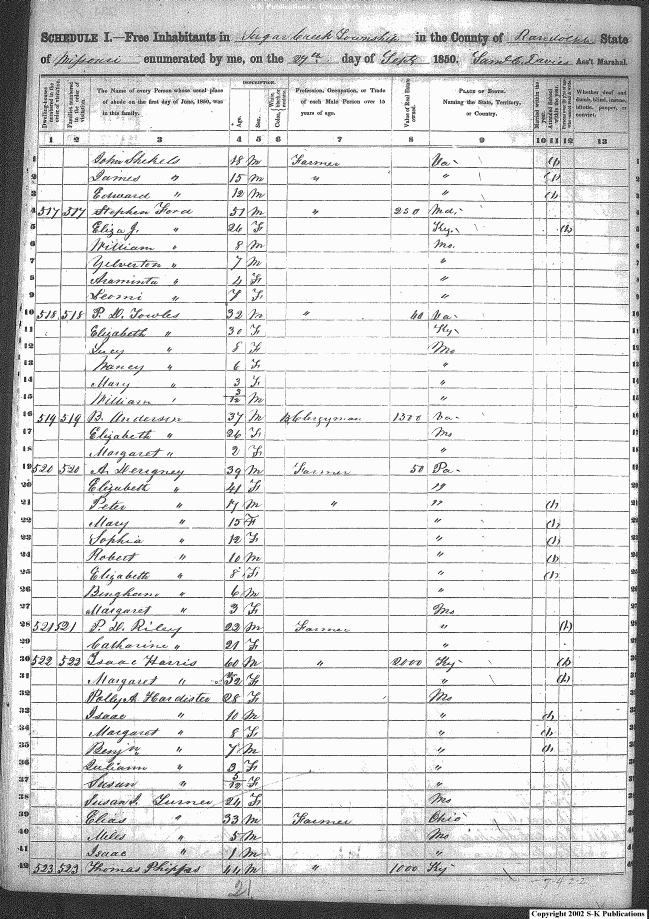 S-K Publications - USGenWeb Archives
SCHEDULE I.—Free Inhabitants in Sugar Creek Township in the County of Randolph State
of Missouri enumerated by me, on the 27th day of Sept 1850. Saml C. Davis Ass't Marshal.
Dwelling-houses numbered in the order of visitation.
Families numbered in the order of visitation.
The Name of every Person whose usual place of abode on the first day of June, 1850, was in this family.
DESCRIPTION.
Age.
Sex.
White, black, or mulatto.
Color,
Profession, Occupation, or Trade of each Male Person over 15 years of age.
Value of Real Estate owned.
PLACE OF BIRTH.
Naming the State, Territory, or Country.
Married within the year.
Attended School within the year.
Whether deaf and dumb, blind, insane, idiotic, pauper, or convict.
1 2 3 4 5 6 7 8 9 10 11 12 13
1 John Shekels 18 M Farmer Va (1)
2 James " 15 M " " (1)
3 Edward " 12 M " (1)
4 517 517 Stephen Ford 51 M " 250 Md.
5 Eliza J. " 26 F Ky. (1)
6 William " 8 M Mo.
7 Yelverton " 7 M "
8 Araminta " 4 F "
9 Leomi " F "
10 518 518 P. D. Towles 32 M " 40 Va
11 Elizabeth " 30 F Ky
12 Lucy " 8 F Mo
13 Nancy " 6 F "
14 Mary " 3 F "
15 William ' 3/12 M "
16 519 519 B. Anderson 37 M B Clergyman 1300 Va
17 Elizabeth " 26 F Mo
18 Margaret " 2 F "
19 520 520 A. Derigney 39 M Farmer 50 Pa
20 Elizabeth " 41 F "
21 Peter " 17 M " "
22 Mary " 15 F " (1)
23 Sophia " 12 F " (1)
24 Robert " 10 M " (1)
25 Elizabeth " 8 F " (1)
26 Bingham " 6 M "
27 Margaret " 3 F Mo
28 521 521 P. D. Riley 22 M Farmer " (1)
29 Catharine " 21 F "
30 522 522 Isaac Harris 60 M " 2000 Ky (1)
31 Margaret " 52 F " (1)
32 Polly A Hardister 28 F Mo
33 Isaac " 10 M " (1)
34 Margaret " 8 F " (1)
35 Benjn " 7 M " (1)
36 Juliann " 3 F "
37 Susan " 5/12 F "
38 Susan J. Turner 24 F Mo
39 Elias " 33 M Farmer Ohio
40 Miles " 5 M Mo
41 Isaac " 1 M "
42 523 523 Thomas Phipps 44 M " 1000 Ky
21
Copyright 2002 S-K Publications